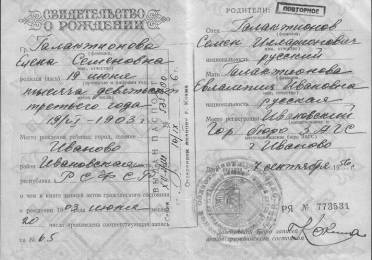 СВИДЕТЕЛЬСТВО
О РОЖДЕНИИ
Гр. Галактионова
(фамилия)
Елена Семеновна
родился (лась) 19 июня
тысяча девятьсот
третьего года
19/VI-1903 г.
Место рождения ребенка: город, селение
Иваново
Ивановская
республика РСФСР
о чем в книге записи актов гражданского состояния
о рождении 1903 июня
20
числа произведена соответствующая запись
за № 65
РОДИТЕЛИ:
ПОВТОРНОЕ
Отец Галактионов
(фамилия)
Семен
(имя, отчество)
национальность русский
Мать Галактионова
(фамилия)
Евлампия Ивановна
(имя, отчество)
национальность русская
Место регистрации Ивановский
Гор. бюро ЗАГС
г. Иваново
сентября
РЯ № 773531
бюро записи
актов гражданского состояния